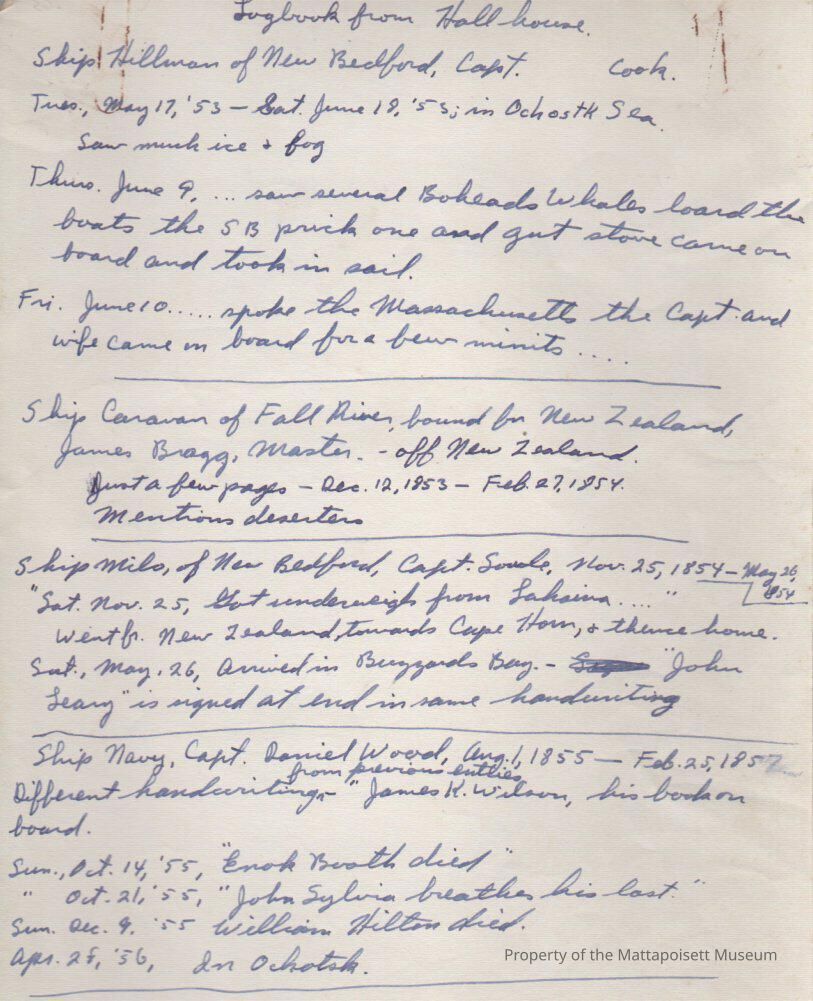 Logbook from Hall house.
Ship Hillman of New Bedford, Capt. Cook.
Tues., May 17, '53 – Sat. June 18, '53; in Ochostk Sea.
Saw much ice + fog
Thurs. June 9, ... saw several Boheads Whales loard the
boats the SB prick one and gut stove came on
board and took in sail.
Fri. June 10..... spoke the Massachusetts the Capt. and
wife came on board for a few minits ....
Ship Caravan of Fall River, bound for New Zealand,
James Bragg, Master. - off New Zealand.
Just a few pages – Dec. 12, 1853 – Feb. 27, 1854.
Mentions deserters
Ship Milo, of New Bedford, Capt. Soule, Nov. 25, 1854 – May 26,
1854
"Sat. Nov. 25, Got underweigh from Lahaina .... "
Went fr. New Zealand, towards Cape Horn, + thence home.
Sat., May. 26, Arrived in Buzzards Bay. – "John
Leary" is signed at end in same handwriting
Ship Navy, Capt. Daniel Wood, Aug. 1, 1855 – Feb. 25, 1857
from previous entries
Different handwriting – "James K. Wilson, his book on
board.
Sun., Oct. 14, '55, "Enok Booth died"
" Oct. 21, '55, "John Sylvia breathes his last."
Sun. Dec. 9, '55 William Hilton died.
Apr. 28, '56, In Ochotsk.
Property of the Mattapoisett Museum